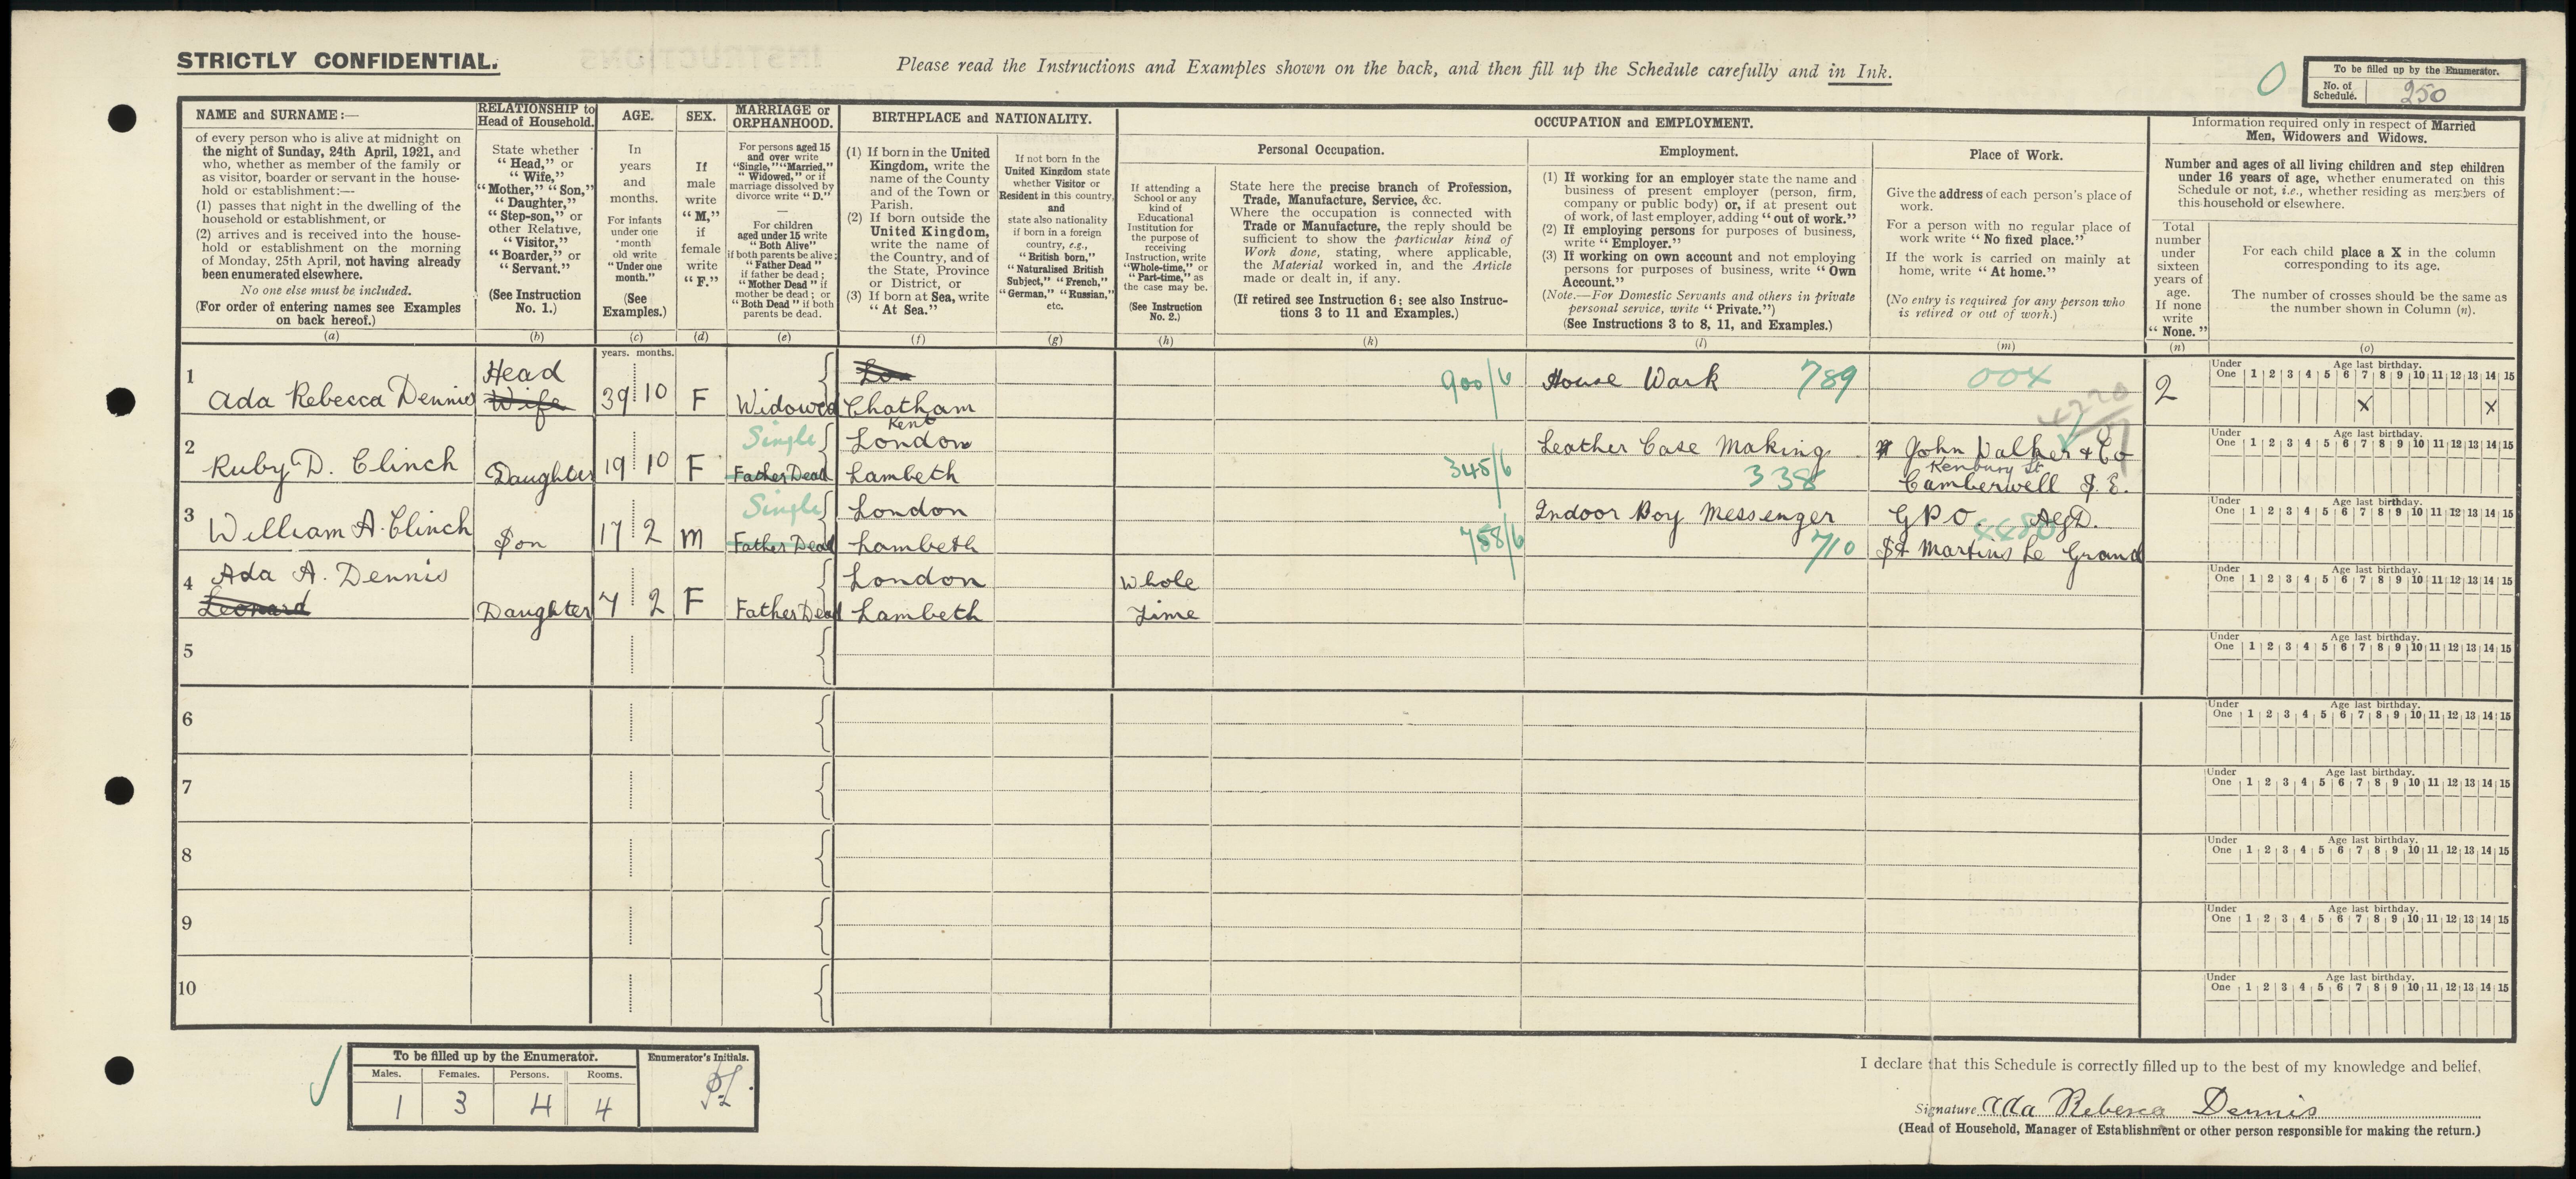 STRICTLY CONFIDENTIAL.
Please read the Instructions and Examples shown on the back, and then fill up the Schedule carefully and in Ink.
To be filled up by the Enumerator.
No. of Schedule. 250
NAME and SURNAME:—
of every person who is alive at midnight on
the night of Sunday, 24th April, 1921, and
who, whether as member of the family or
as visitor, boarder or servant in the house-
hold or establishment:—
(1) passes that night in the dwelling of the
household or establishment, or
(2) arrives and is received into the house-
hold or establishment on the morning
of Monday, 25th April, not having already
been enumerated elsewhere.
No one else must be included.
(For order of entering names see Examples
on back hereof.)
(a)
RELATIONSHIP to
Head of Household.
State whether
"Head," or
"Wife,"
"Mother," "Son,"
"Daughter,"
"Step-son," or
other Relative,
"Visitor,"
"Boarder," or
"Servant."
(See Instruction
No. 1.)
(b)
AGE.
In
years
and
months.
For infants
under one
month
old write
"Under one
month."
(See
Examples.)
(c)
years. months.
SEX.
If
male
write
"M,"
if
female
write
"F."
(d)
MARRIAGE or
ORPHANHOOD.
For persons aged 15
and over write
"Single," "Married,"
"Widowed," or if
marriage dissolved by
divorce write "D."
—
For children
aged under 15 write
"Both Alive"
if both parents be alive;
"Father Dead"
if father be dead;
"Mother Dead" if
mother be dead; or
"Both Dead" if both
parents be dead.
(e)
BIRTHPLACE and NATIONALITY.
(1) If born in the United
Kingdom, write the
name of the County
and of the Town or
Parish.
(2) If born outside the
United Kingdom,
write the name of
the Country, and of
the State, Province
or District, or
(3) If born at Sea, write
"At Sea."
(f)
If not born in the
United Kingdom state
whether Visitor or
Resident in this country,
and
state also nationality
if born in a foreign
country, e.g.,
"British born,"
"Naturalised British
Subject," "French,"
"German," "Russian,"
etc.
(g)
OCCUPATION and EMPLOYMENT.
If attending a
School or any
kind of
Educational
Institution for
the purpose of
receiving
Instruction, write
"Whole-time," or
"Part-time," as
the case may be.
(See Instruction
No. 2.)
(h)
Personal Occupation.
State here the precise branch of Profession,
Trade, Manufacture, Service, &c.
Where the occupation is connected with
Trade or Manufacture, the reply should be
sufficient to show the particular kind of
Work done, stating, where applicable,
the Material worked in, and the Article
made or dealt in, if any.
(If retired see Instruction 6; see also Instruc-
tions 3 to 11 and Examples.)
(k)
Employment.
(1) If working for an employer state the name and
business of present employer (person, firm,
company or public body) or, if at present out
of work, of last employer, adding "out of work."
(2) If employing persons for purposes of business,
write "Employer."
(3) If working on own account and not employing
persons for purposes of business, write "Own
Account."
(Note.—For Domestic Servants and others in private
personal service, write "Private.")
(See Instructions 3 to 8, 11, and Examples.)
(l)
Place of Work.
Give the address of each person's place of
work.
For a person with no regular place of
work write "No fixed place."
If the work is carried on mainly at
home, write "At home."
(No entry is required for any person who
is retired or out of work.)
(m)
Information required only in respect of Married
Men, Widowers and Widows.
Number and ages of all living children and step children
under 16 years of age, whether enumerated on this
Schedule or not, i.e., whether residing as members of
this household or elsewhere.
Total
number
under
sixteen
years of
age.
If none
write
"None."
(n)
For each child place a X in the column
corresponding to its age.
The number of crosses should be the same as
the number shown in Column (n).
(o)
Under One Age last birthday. 1 2 3 4 5 6 7 8 9 10 11 12 13 14 15
1 Ada Rebecca Dennis Head Wife 39 10 F Widowed Lon Chatham Kent 900/6 House Work 789 00X 2 X X
2 Ruby D. Clinch Daughter 19 10 F Single Father Dead London Lambeth 345/6 Leather Case Making 338 John Walker & Co Kenbury St Camberwell S.E.
Under One Age last birthday. 1 2 3 4 5 6 7 8 9 10 11 12 13 14 15
3 William A. Clinch Son 17 2 M Single Father Dead London Lambeth 758/6 Indoor Boy Messenger 710 G P O St Martins Le Grand
Under One Age last birthday. 1 2 3 4 5 6 7 8 9 10 11 12 13 14 15
4 Ada A. Dennis Leonard Daughter 7 2 F Father Dead London Lambeth Whole Time
Under One Age last birthday. 1 2 3 4 5 6 7 8 9 10 11 12 13 14 15
5
Under One Age last birthday. 1 2 3 4 5 6 7 8 9 10 11 12 13 14 15
6
Under One Age last birthday. 1 2 3 4 5 6 7 8 9 10 11 12 13 14 15
7
Under One Age last birthday. 1 2 3 4 5 6 7 8 9 10 11 12 13 14 15
8
Under One Age last birthday. 1 2 3 4 5 6 7 8 9 10 11 12 13 14 15
9
Under One Age last birthday. 1 2 3 4 5 6 7 8 9 10 11 12 13 14 15
10
Under One Age last birthday. 1 2 3 4 5 6 7 8 9 10 11 12 13 14 15
To be filled up by the Enumerator.
Males. Females. Persons. Rooms.
1 3 4 4
Enumerator's Initials.
I declare that this Schedule is correctly filled up to the best of my knowledge and belief.
Signature Ada Rebecca Dennis
(Head of Household, Manager of Establishment or other person responsible for making the return.)